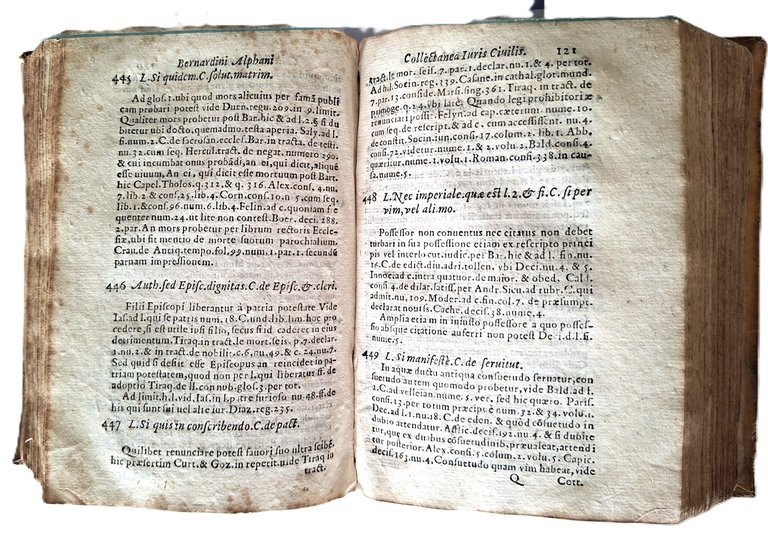 Bernardini Alphani
445 L. Si quidem. C. solut. matrim.
Ad glos. 1. ubi quod mors alicuius per famā publi
cam probari potest vide Duen. regu. 209. in 9. limit.
Qualiter mors probetur post Bar. hic & ad l. 2. § si du
bitetur ubi docto. quemadmo. testa aperia. Saly. ad l.
si. num. 2. C. de sacrosan. eccles. Bar. in tracta. de testi.
nu. 32. cum seq. Hercul. tract. de negat. numero 290.
& cui incumbat onus probādi, an ei, qui dicit, aliquē
esse uiuum, An ei, qui dicit esse mortuum post Bart.
hic Capel. Tholos. q. 312. & q. 316. Alex. cons. 4. nu.
7. lib. 2 & cons. 25. lib. 4. Corn. cons. 10. n. 5. cum seq.
lib. 1. & cons. 96. num. 6. lib. 4. Felin. ad c. quoniam fre
quenter num. 24. ut lite non contest. Boer. deci. 288.
2. par. An mors probetur per librum rectoris Eccle-
siæ, ubi fit mentio de morte suorum parochialium.
Crau. de Antiq. tempo. fol. 99. num. 1. par. 1. secundū
paruam impressionem.
446 Auth. sed Episc. dignitas. C. de Episc. & cleri.
Filii Episcopi liberantur à patria potestate Vide
Ias. ad l. qui se patris num. 18. C. und. lib. lim. hoc pro
cedere, si est utile ipsi filio, secus si id caderet in eius
detrimentum. Tiraq. in tract. le mort. seis. p. 7. declar.
1. nu. 2. & in tract. de nobilit. c. 6. nu. 49. & c. 24. nu. 7.
Sed quid si desiit esse Episcopus an reincidet in pa-
triam potestatem, quod non per l. qui liberatur ff. de
adoptio Tiraq. de ll. con nub. glos. 3. per tot.
Ad limit. h. l. vid. Ias. in l. p tre furioso nu. 48. ff. de
his qui sunt sui uel alte iur. Diaz. reg. 235.
447 L. Si quis in conscribendo. C. de pact.
Quilibet renunciare potest fauori suo ultra scibē.
hic præsertim Curt. & Goz. in repetit. uide Tiraq. in
tract.
Collectanea Iuris Ciuilis. 121
tract. le mor. seis. 7. par. 1. declar. nu. 1. & 4. per tot.
Ad h. Socin. reg. 339. Cassne. in cathal. glor. mund.
7. par. 13. conside. Marsi. sing. 361. Tiraq. in tract. de
q. 24. vbi latè. Quando legi prohibitoriæ
renunciari possit. Felyn. ad cap. extæterum. nume. 10.
cum seq. de rescript. & ad c. cum accessissent. nu. 4.
de constit. Socin. iun. consi. 17. colum. 2. lib. 1. Abb.
consi. 72. videtur. nume. 1. & 2. volu. 2. Bald. consi.
quæritur. nume. 1. volu. 1. Roman. consi. 338. in cau-
sa. nume. 5.
448 L. Nec imperiale. quæ est l. 2. & fi. C. si per
vim, vel ali. mo.
Possessor non conuentus nec citatus non debet
turbari in sua possessione etiam ex rescripto princi
pis vel interlocut. iudic. per Bar. hic & ad l. fin. nu.
16. C. de edict. diu. adri. tollen. vbi Deci. nu. 4. & 5.
Innoc. ad c. intra quatuor. de maior. & obed. Cal.
consi. 4. de dilat. latiss. per Andr. Sicu. ad rubr. C. qui
admit. nu. 109. Moder. ad c. fin. col. 7. de præsumpt.
declarat nouiss. Cache. decis. 38. nume. 4.
Amplia etiam in iniusto possessore a quo posses-
sio absque citatione auferri non potest De i. d. l. fi.
nume. 5.
449 L. Si manifestè. C. de seruitut.
In aquæ ductu antiqua consuetudo seruatur, con
suetudo autem quomodo probetur, vide Bald. ad l.
1. C. ad velleian. nume. 5. ver. sed hic quero. Paris.
consi. 13. per totum præcipuè num. 32. & 34. volu. 1.
Dec. ad l. 1. nu. 18. C. de eden. & quòd cōsuetudo in
dubio attendatur. Afflic. decis. 192. nu. 4. & si dubite
tur, que ex duabus cōsuetudinib, præualeat, attendi
tur posterior. Alex. consi. 5. colum. 2. volu. 5. Capic.
decis. 163. nu. 4. Consuetudo quam vim habeat, vide
Q Cett.